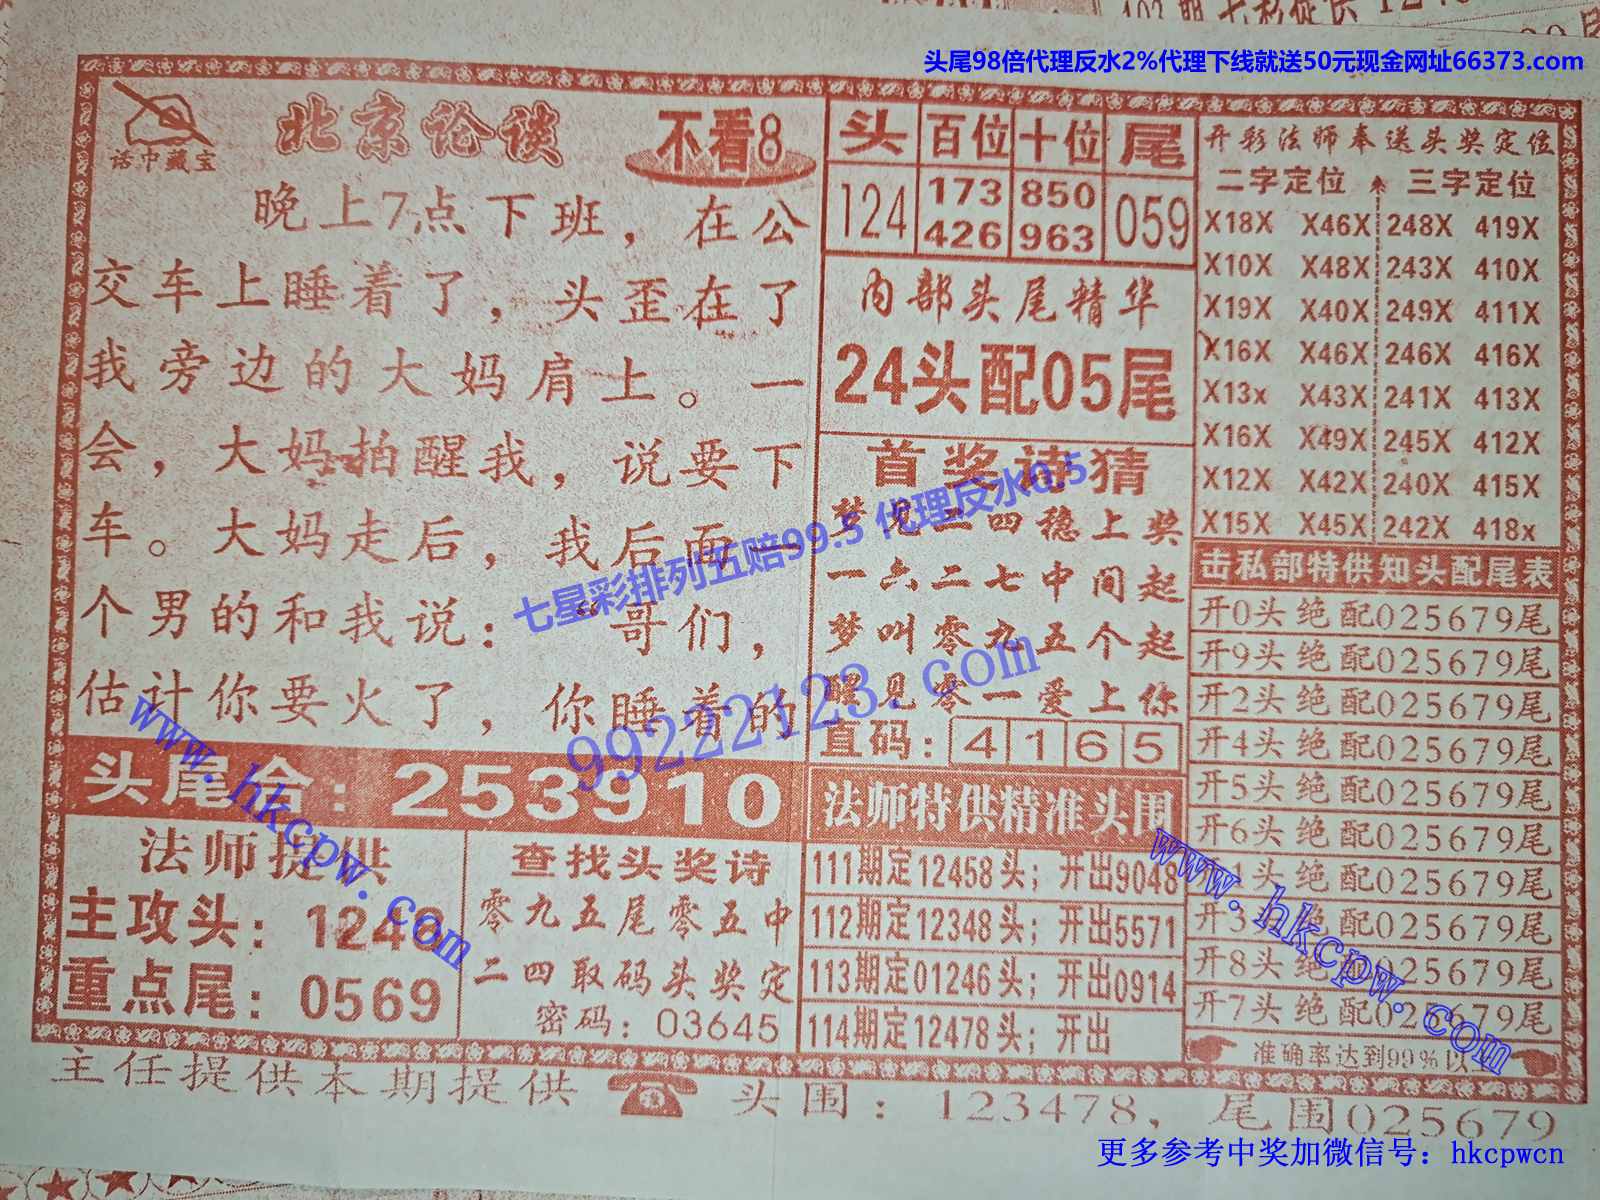 头尾98倍代理反水2%代理下线就送50元现金网址66373.com
话中藏宝
北京论谈
不看8
晚上7点下班，在公
交车上睡着了，头歪在了
我旁边的大妈肩上。一
会，大妈拍醒我，说要下
车。大妈走后，我后面一
个男的和我说：“哥们，
估计你要火了，你睡着的
头尾合：253910
法师提供
主攻头：1248
重点尾：0569
查找头奖诗
零九五尾零五中
二四取码头奖定
密码：03645
头 百位 十位 尾
124 173 850 059
426 963
内部头尾精华
24头配05尾
首奖诗猜
梦见二四稳上奖
一六二七中间起
梦叫零九五个起
醒见零一爱上你
直码：4165
法师特供精准头围
111期定12458头；开出9048
112期定12348头；开出5571
113期定01246头；开出0914
114期定12478头；开出
开彩法师奉送头奖定位
二字定位 三字定位
X18X X46X 248X 419X
X10X X48X 243X 410X
X19X X40X 249X 411X
X16X X46X 246X 416X
X13x X43X 241X 413X
X16X X49X 245X 412X
X12X X42X 240X 415X
X15X X45X 242X 418x
击私部特供知头配尾表
开0头绝配025679尾
开9头绝配025679尾
开2头绝配025679尾
开4头绝配025679尾
开5头绝配025679尾
开6头绝配025679尾
开1头绝配025679尾
开3头绝配025679尾
开8头绝配025679尾
开7头绝配025679尾
准确率达到99%以上
主任提供本期提供 头围：123478，尾围025679
七星彩排列五赔99.5 代理反水0.5
99222123.com
www.hkcpw.com
www.hkcpw.com
更多参考中奖加微信号：hkcpwcn